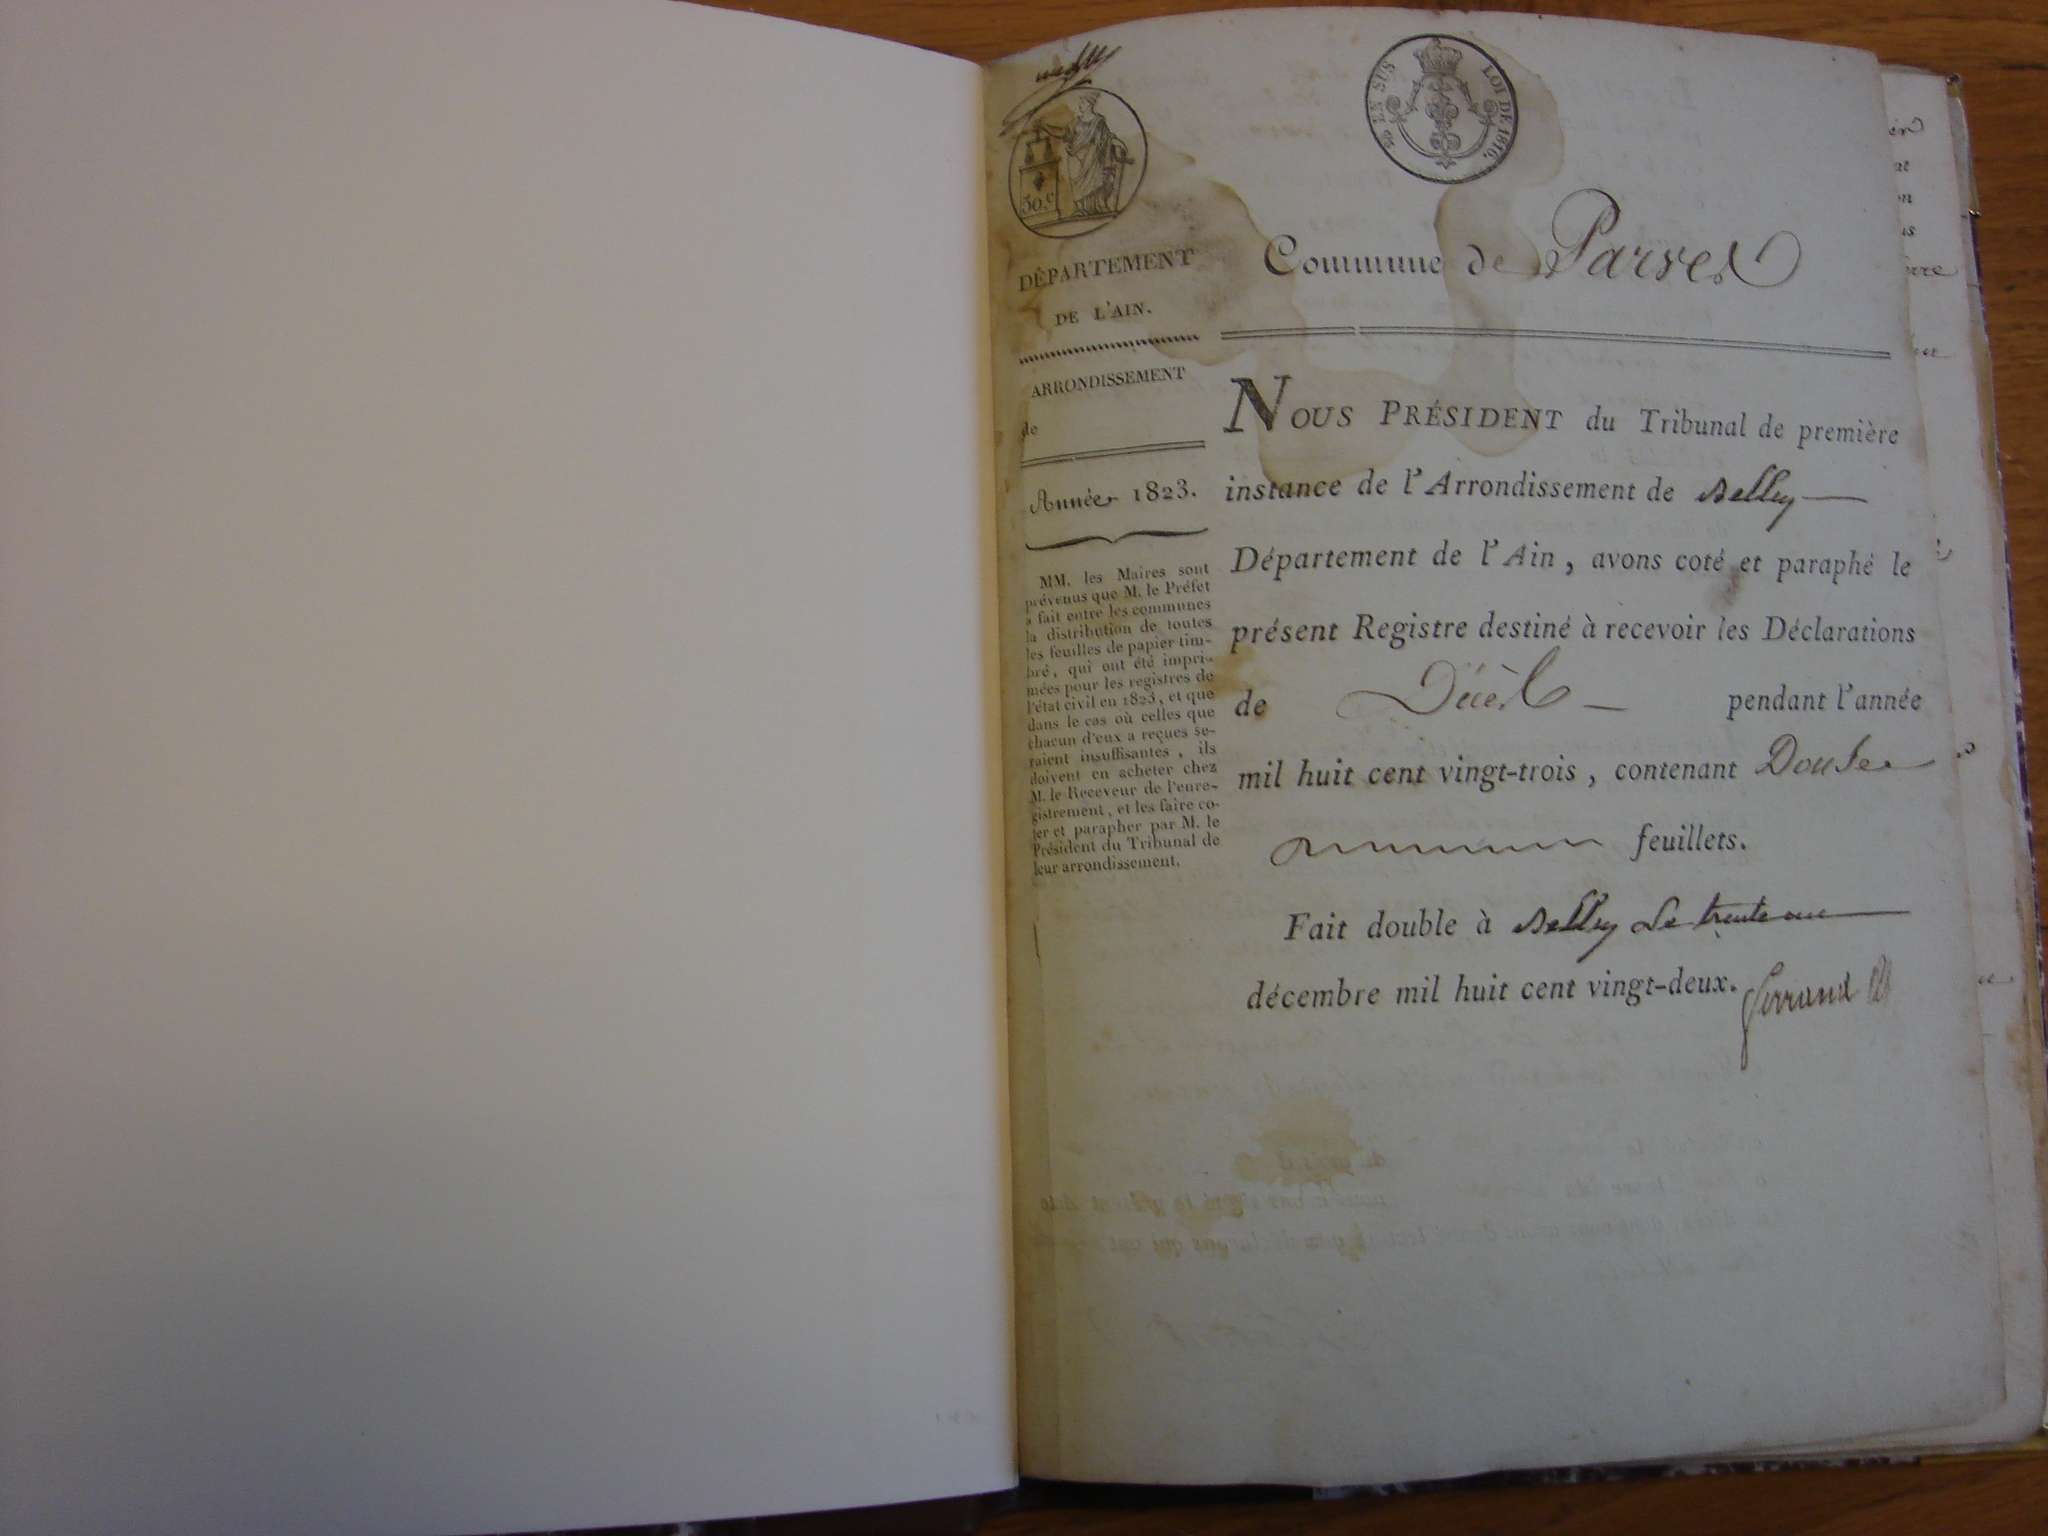 EN SUS
LOI DE 1816.
30.c
DÉPARTEMENT
DE L'AIN.
ARRONDISSEMENT
de
Année 1823.
MM. les Maires sont
prévenus que M. le Préfet
a fait entre les communes
la distribution de toutes
les feuilles de papier tim-
bré, qui ont été impri-
mées pour les registres de
l'état civil en 1823, et que
dans le cas où celles que
chacun d'eux a reçues se-
raient insuffisantes, ils
doivent en acheter chez
M. le Receveur de l'enre-
gistrement, et les faire co-
ter et parapher par M. le
Président du Tribunal de
leur arrondissement.
Commune de Parves
NOUS PRÉSIDENT du Tribunal de première
instance de l'Arrondissement de Belley
Département de l'Ain, avons coté et paraphé le
présent Registre destiné à recevoir les Déclarations
de Décès pendant l'année
mil huit cent vingt-trois, contenant Douze
feuillets.
Fait double à Belley Le trente un
décembre mil huit cent vingt-deux. Ferrand